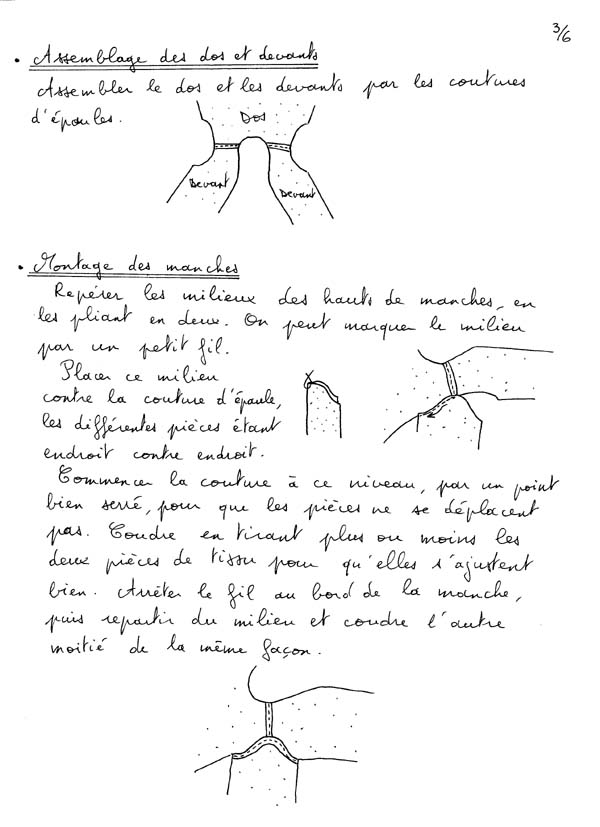 3/6
• Assemblage des dos et devants
Assembler le dos et les devants par les coutures
d'épaules.
Dos
Devant
Devant
• Montage des manches
Repérer les milieux des hauts de manches, en
les pliant en deux. On peut marquer le milieu
par un petit fil.
Placer ce milieu
contre la couture d'épaule,
les différentes pièces étant
endroit contre endroit.
Commencer la couture à ce niveau, par un point
bien serré, pour que les pièces ne se déplacent
pas. Coudre en tirant plus ou moins les
deux pièces de tissu pour qu'elles s'ajustent
bien. Arrêter le fil au bord de la manche,
puis repartir du milieu et coudre l'autre
moitié de la même façon.